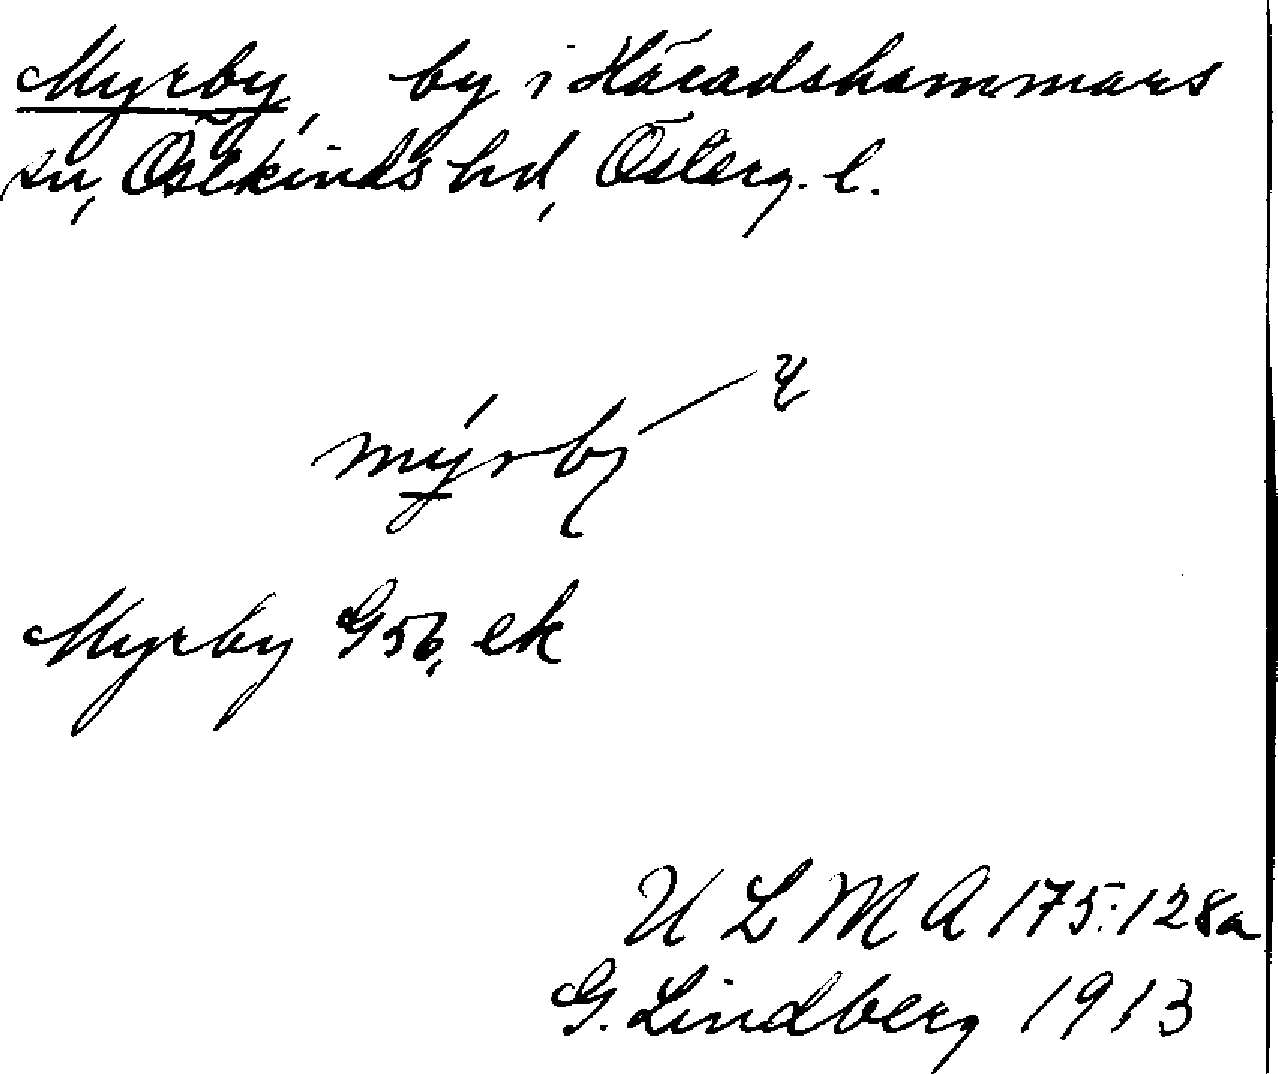 Myrby, by i Häradshammars
sn, Östkinds hd, Österg. l.
y
mýrbý
Myrby G 56, ek
U L M A 175:128a
G. Lindberg 1913